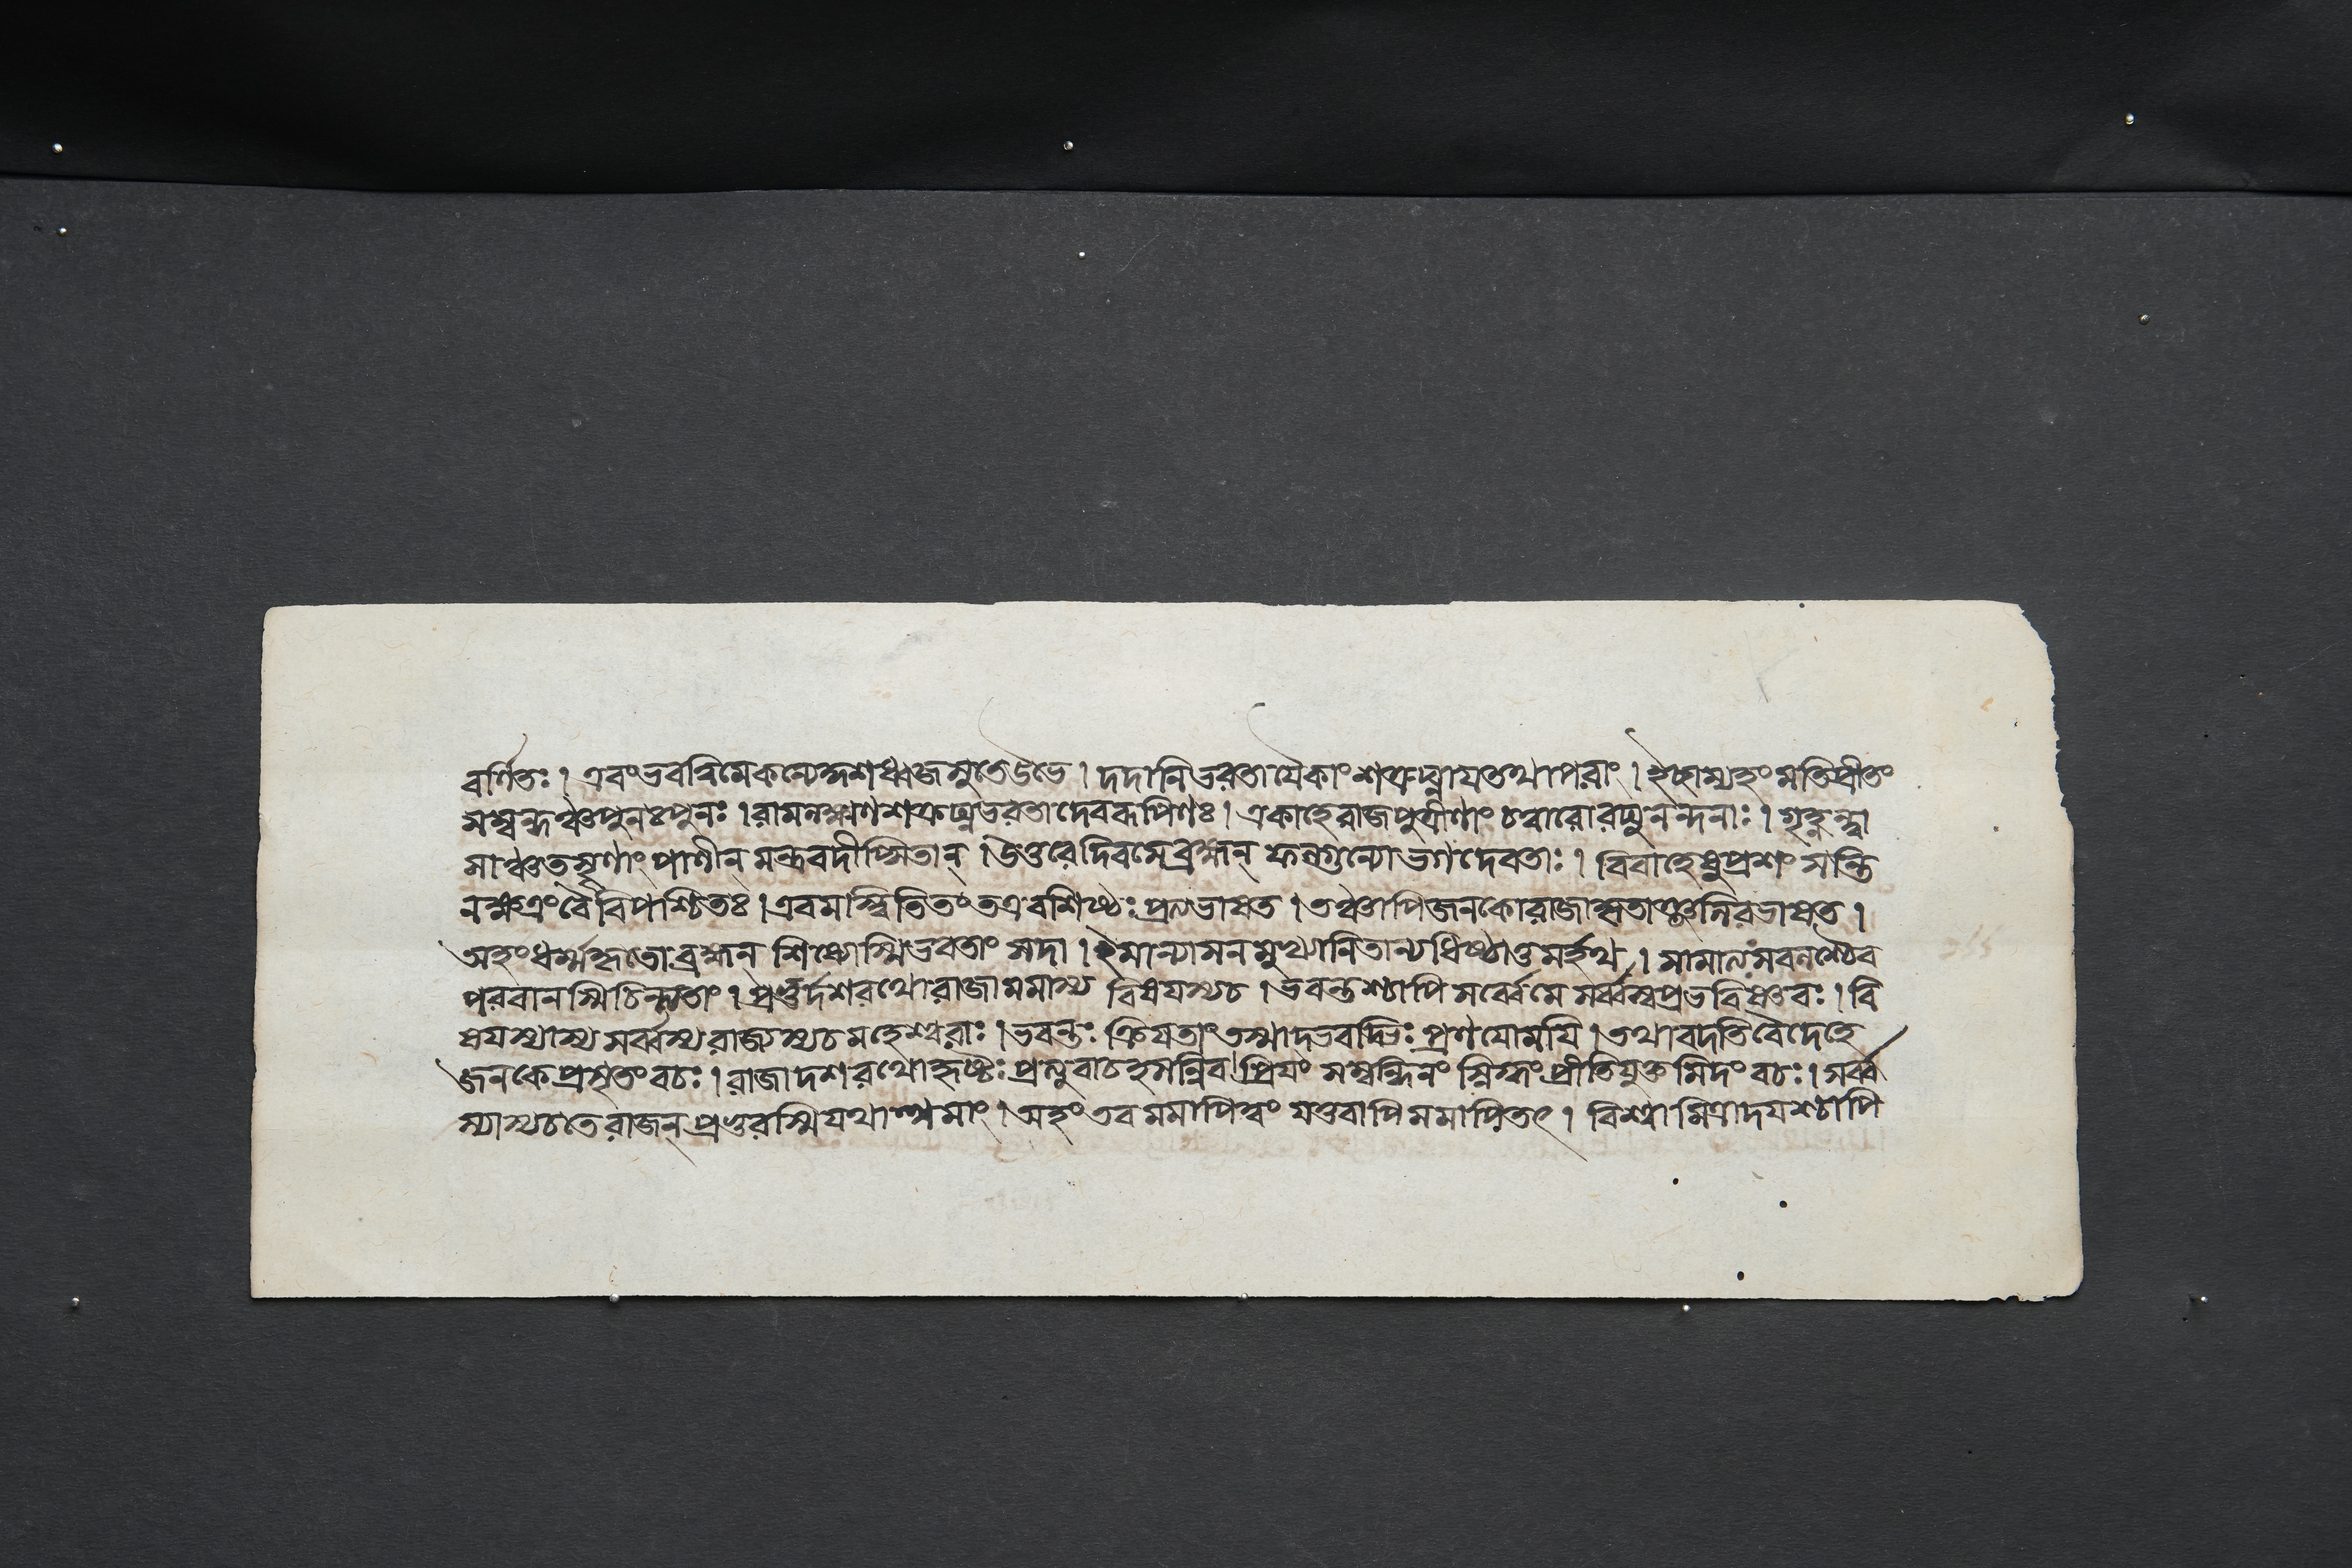 বর্ণিতঃ । এবংভবত্বিমেকন্যেকুশধ্বজসুতেউভে । দদানিভরতাযৈকাংশত্রুঘ্নাযতথাপরাং । ইচ্ছাম্যহংমতিপ্রীতং
সম্বন্ধঞ্চপুনঃপুনঃ । রামলক্ষ্মণশত্রুঘ্নভরতাদেবরূপিণঃ । একাহেরাজপুত্রীণাং চত্বারোরঘুনন্দনাঃ । গৃহ্নন্ত্বা
সাঞ্চতসৃণাং পাণীন্ মন্ত্রবদীপ্সিতান্ । উত্তরেদিবসেব্রহ্মন্ ফল্গুন্যোভগদেবতাঃ । বিবাহেষুপ্রশংসন্তি
নক্ষত্রংবৈবিপশ্চিতঃ । এবমস্ত্বিতিতংতত্রবশিষ্ঠঃ প্রত্যভাষত । তঞ্চাপিজনকোরাজাকৃতাঞ্জলিরভাষত ।
অহংধর্ম্মহৃতোব্রহ্মন্ শিষ্যোস্মিভবতাং সদা । ইমান্যাসনমুখ্যানিতান্যধিষ্ঠাতুমর্হথ । সামাত্যসবলশ্চৈব
পরবানস্মিচিন্ত্যতাং । প্রভুর্দশরথোরাজামমাস্য বিষযস্যচ । ভবন্তশ্চাপি সর্ব্বেমে সর্ব্বস্বপ্রভবিষ্ণবঃ । বি
ষযস্যাস্য সর্ব্বস্যরাজ্যস্যচমহেশ্বরাঃ । ভবন্তঃ ক্রিযতাং তস্মাদ্ভবদ্ভিঃ প্রণযোমযি । তথাবদতিবৈদেহে
জনকেপ্রসৃতংবচঃ । রাজাদশরথোহৃষ্টঃ প্রত্যুবাচহসন্নিব । প্রিযং সম্বন্ধিনং স্নিগ্ধং প্রীতিযুক্তমিদংবচঃ । সর্ব্ব
স্যাস্যচতেরাজন্ প্রভুরস্মিযথাত্থমাং । অহংতবমমাপিত্বং যত্তবাপিমমাপিতৎ । বিশ্বামিত্রাদযশ্চাপি